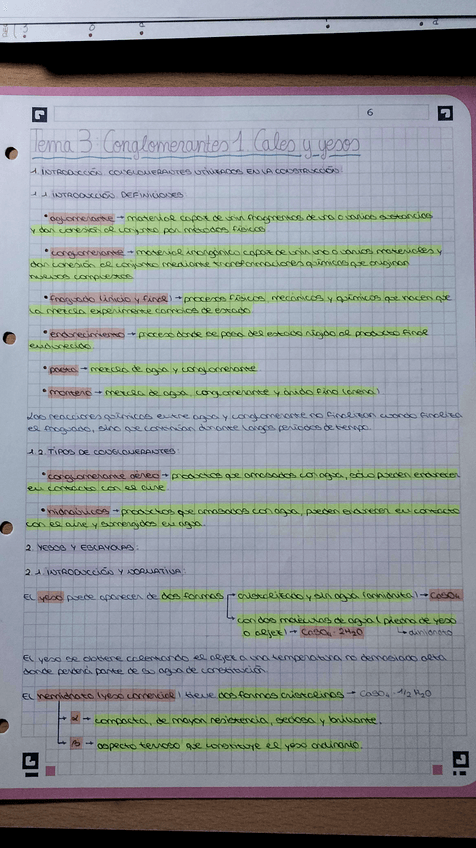 6
Tema 3 Conglomerantes 1 Cales y yesos
1. INTRODUCCIÓN. CONGLOMERANTES UTILIZADOS EN LA CONSTRUCCIÓN:
1.1. INTRODUCCIÓN. DEFINICIONES:
• aglomerante → material capaz de unir fragmentos de una o varias sustancias
y dar cohesión al conjunto por métodos físicos.
• conglomerante → material inorgánico capaz de unir uno o varios materiales y
dar cohesión al conjunto mediante transformaciones químicas que originan
nuevos compuestos
• fraguado (inicio y final) → procesos físicos, mecánicos y químicos que hacen que
la mezcla experimente cambios de estado.
• endurecimiento → proceso donde se pasa del estado rígido al producto final
endurecido.
• pasta → mezcla de agua y conglomerante.
• mortero → mezcla de agua, conglomerante y árido fino (arena)
Las reacciones químicas entre agua y conglomerante no finalizan cuando finaliza
el fraguado, sino que continúan durante largos periodos de tiempo.
1.2. TIPOS DE CONGLOMERANTES:
• conglomerante aéreo → productos que amasados con agua, sólo pueden endurecer
en contacto con el aire
• hidráulicos → productos que amasados con agua, pueden endurecer en contacto
con el aire y sumergidos en agua.
2. YESOS Y ESCAYOLAS:
2.1. INTRODUCCIÓN Y NORMATIVA:
El yeso puede aparecer de dos formas → cristalizado y sin agua (anhidrita) → CaSO4
→ con dos moléculas de agua (piedra de yeso
o aljez) → CaSO4 · 2H2O → dihidrato
El yeso se obtiene calentando el aljez a una temperatura no demasiado alta
donde perderá parte de su agua de constitución.
El hemidrato (yeso comercial) tiene dos formas cristalinas → CaSO4 · 1/2 H2O
→ α → compacta, de mayor resistencia, sedosa y brillante.
→ β → aspecto terroso que constituye el yeso ordinario.